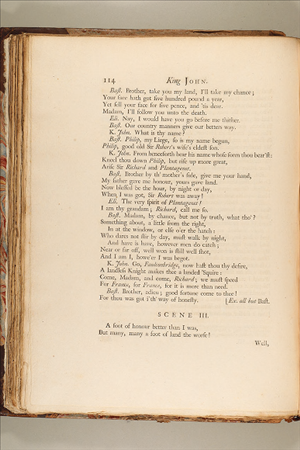 114 King JOHN.
Bast. Brother, take you my land, I'll take my chance;
Your face hath got five hundred pound a year,
Yet sell your face for five pence, and 'tis dear.
Madam, I'll follow you unto the death.
Eli. Nay, I would have you go before me thither.
Bast. Our country manners give our betters way.
K. John. What is thy name?
Bast. Philip, my Liege, so is my name begun,
Philip, good old Sir Robert's wife's eldest son.
K. John. From henceforth bear his name whose form thou bear'st:
Kneel thou down Philip, but rise up more great,
Arise Sir Richard and Plantagenet.
Bast. Brother by th' mother's side, give me your hand,
My father gave me honour, yours gave land.
Now blessed be the hour, by night or day,
When I was got, Sir Robert was away!
Eli. The very spirit of Plantagenet!
I am thy grandam; Richard, call me so.
Bast. Madam, by chance, but not by truth, what tho'?
Something about, a little from the right,
In at the window, or else o'er the hatch:
Who dares not stir by day, must walk by night,
And have is have, however men do catch;
Near or far off, well won is still well shot,
And I am I, howe'er I was begot.
K. John. Go, Faulconbridge, now hast thou thy desire,
A landless Knight makes thee a landed 'squire:
Come, Madam, and come, Richard; we must speed
For France, for France, for it is more than need.
Bast. Brother, adieu; good fortune come to thee!
For thou was got i' th' way of honesty. [Ex. all but Bast.
SCENE III.
A foot of honour better than I was,
But many, many a foot of land the worse!
Well,